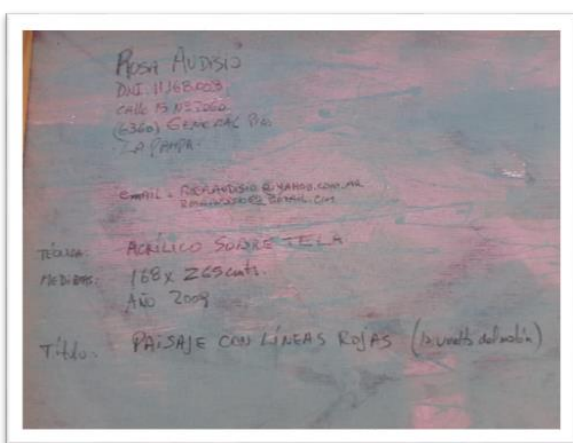 ROSA AUDISIO
DNI. 11168.003
CALLE 15 Nº 3060
(6360) GENERAL PICO
LA PAMPA.
email: ROSAAUDISIO@YAHOO.COM.AR
TÉCNICA: ACRÍLICO SOBRE TELA
MEDIDAS: 168 x 265 cmts.
AÑO 2009
Título: PAISAJE CON LÍNEAS ROJAS (la vuelta del malón)